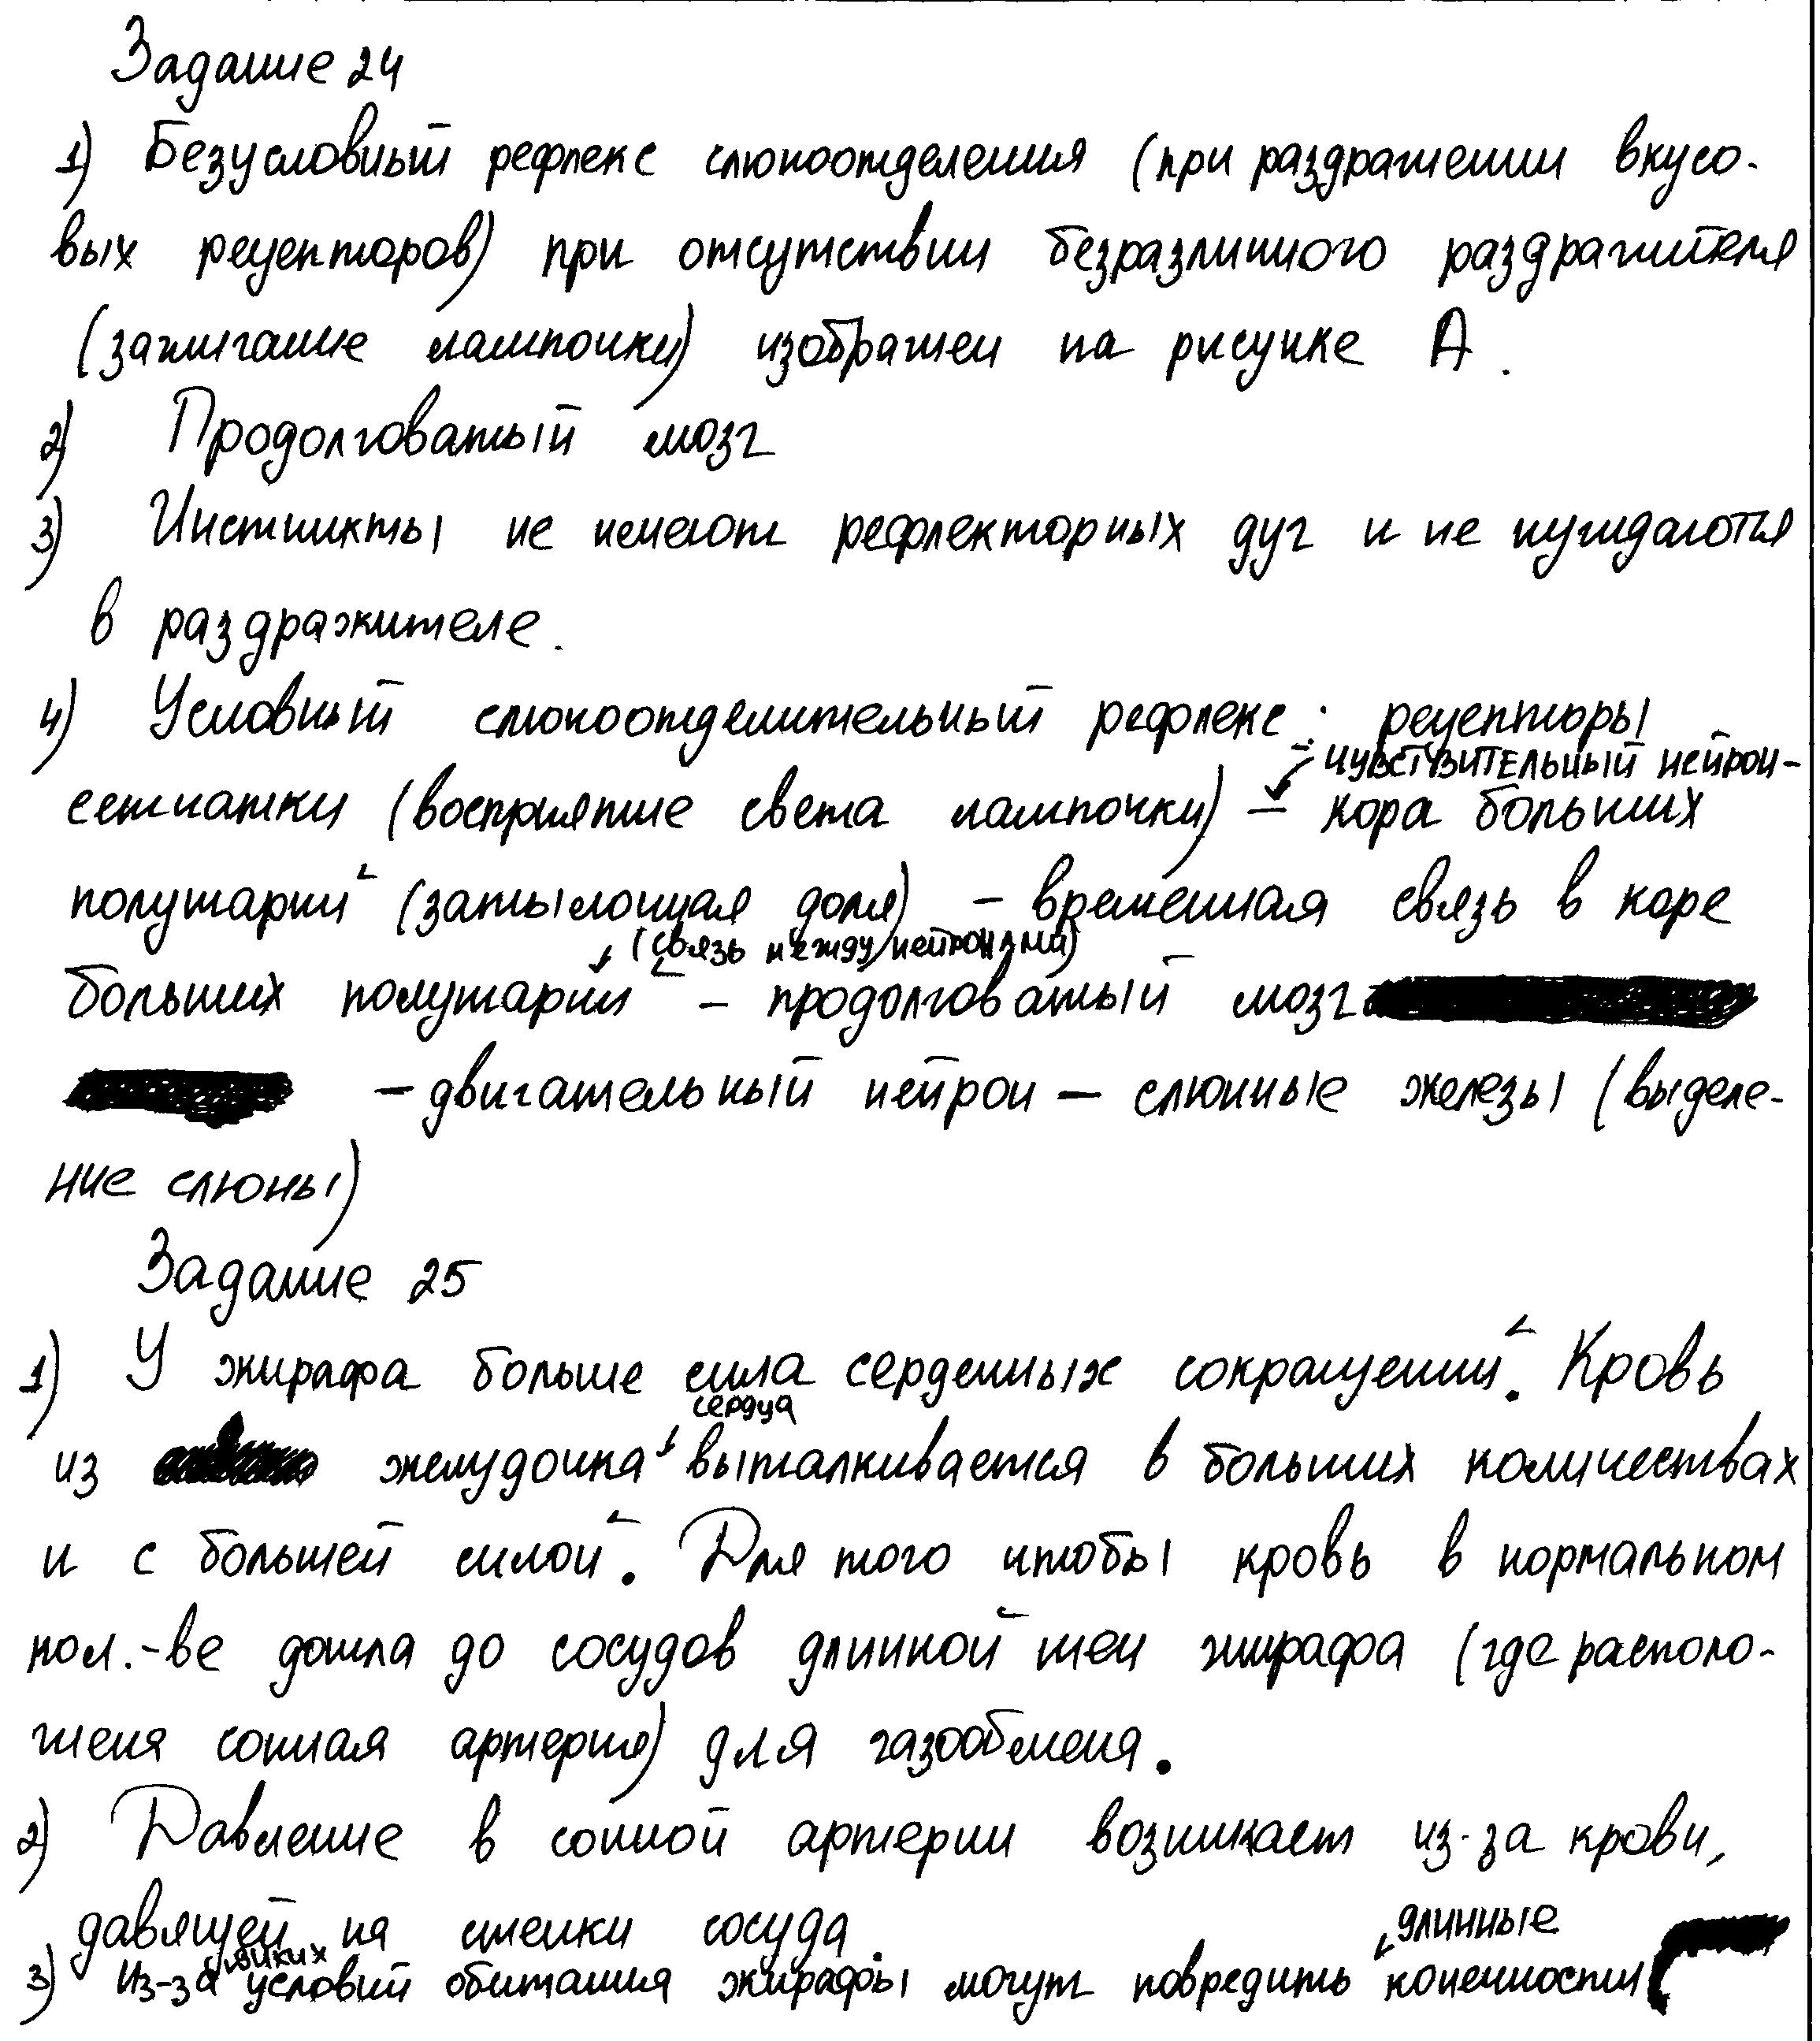 Задание 24
1) Безусловный рефлекс слюноотделения (при раздражении вкусо-
вых рецепторов) при отсутствии безразличного раздражителя
(зажигание лампочки) изображен на рисунке А.
2) Продолговатый мозг
3) Инстинкты не имеют рефлекторных дуг и не нуждаются
в раздражителе.
4) Условный слюноотделительный рефлекс: рецепторы
- чувствительный нейрон -
сетчатки (восприятие света лампочки) - кора больших
полушарий (затылочная доля) - временная связь в коре
(связь между нейронами)
больших полушарий - продолговатый мозг
- двигательный нейрон - слюнные железы (выделе-
ние слюны)
Задание 25
1) У жирафа больше сила сердечных сокращений. Кровь
сердца
из желудочка выталкивается в больших количествах
и с большей силой. Для того чтобы кровь в нормальном
кол.-ве дошла до сосудов длинной шеи жирафа (где располо-
жена сонная артерия) для газообмена.
2) Давление в сонной артерии возникает из-за крови,
давящей на стенки сосуда.
длинные
диких
3) Из-за условий обитания жирафы могут повредить конечности